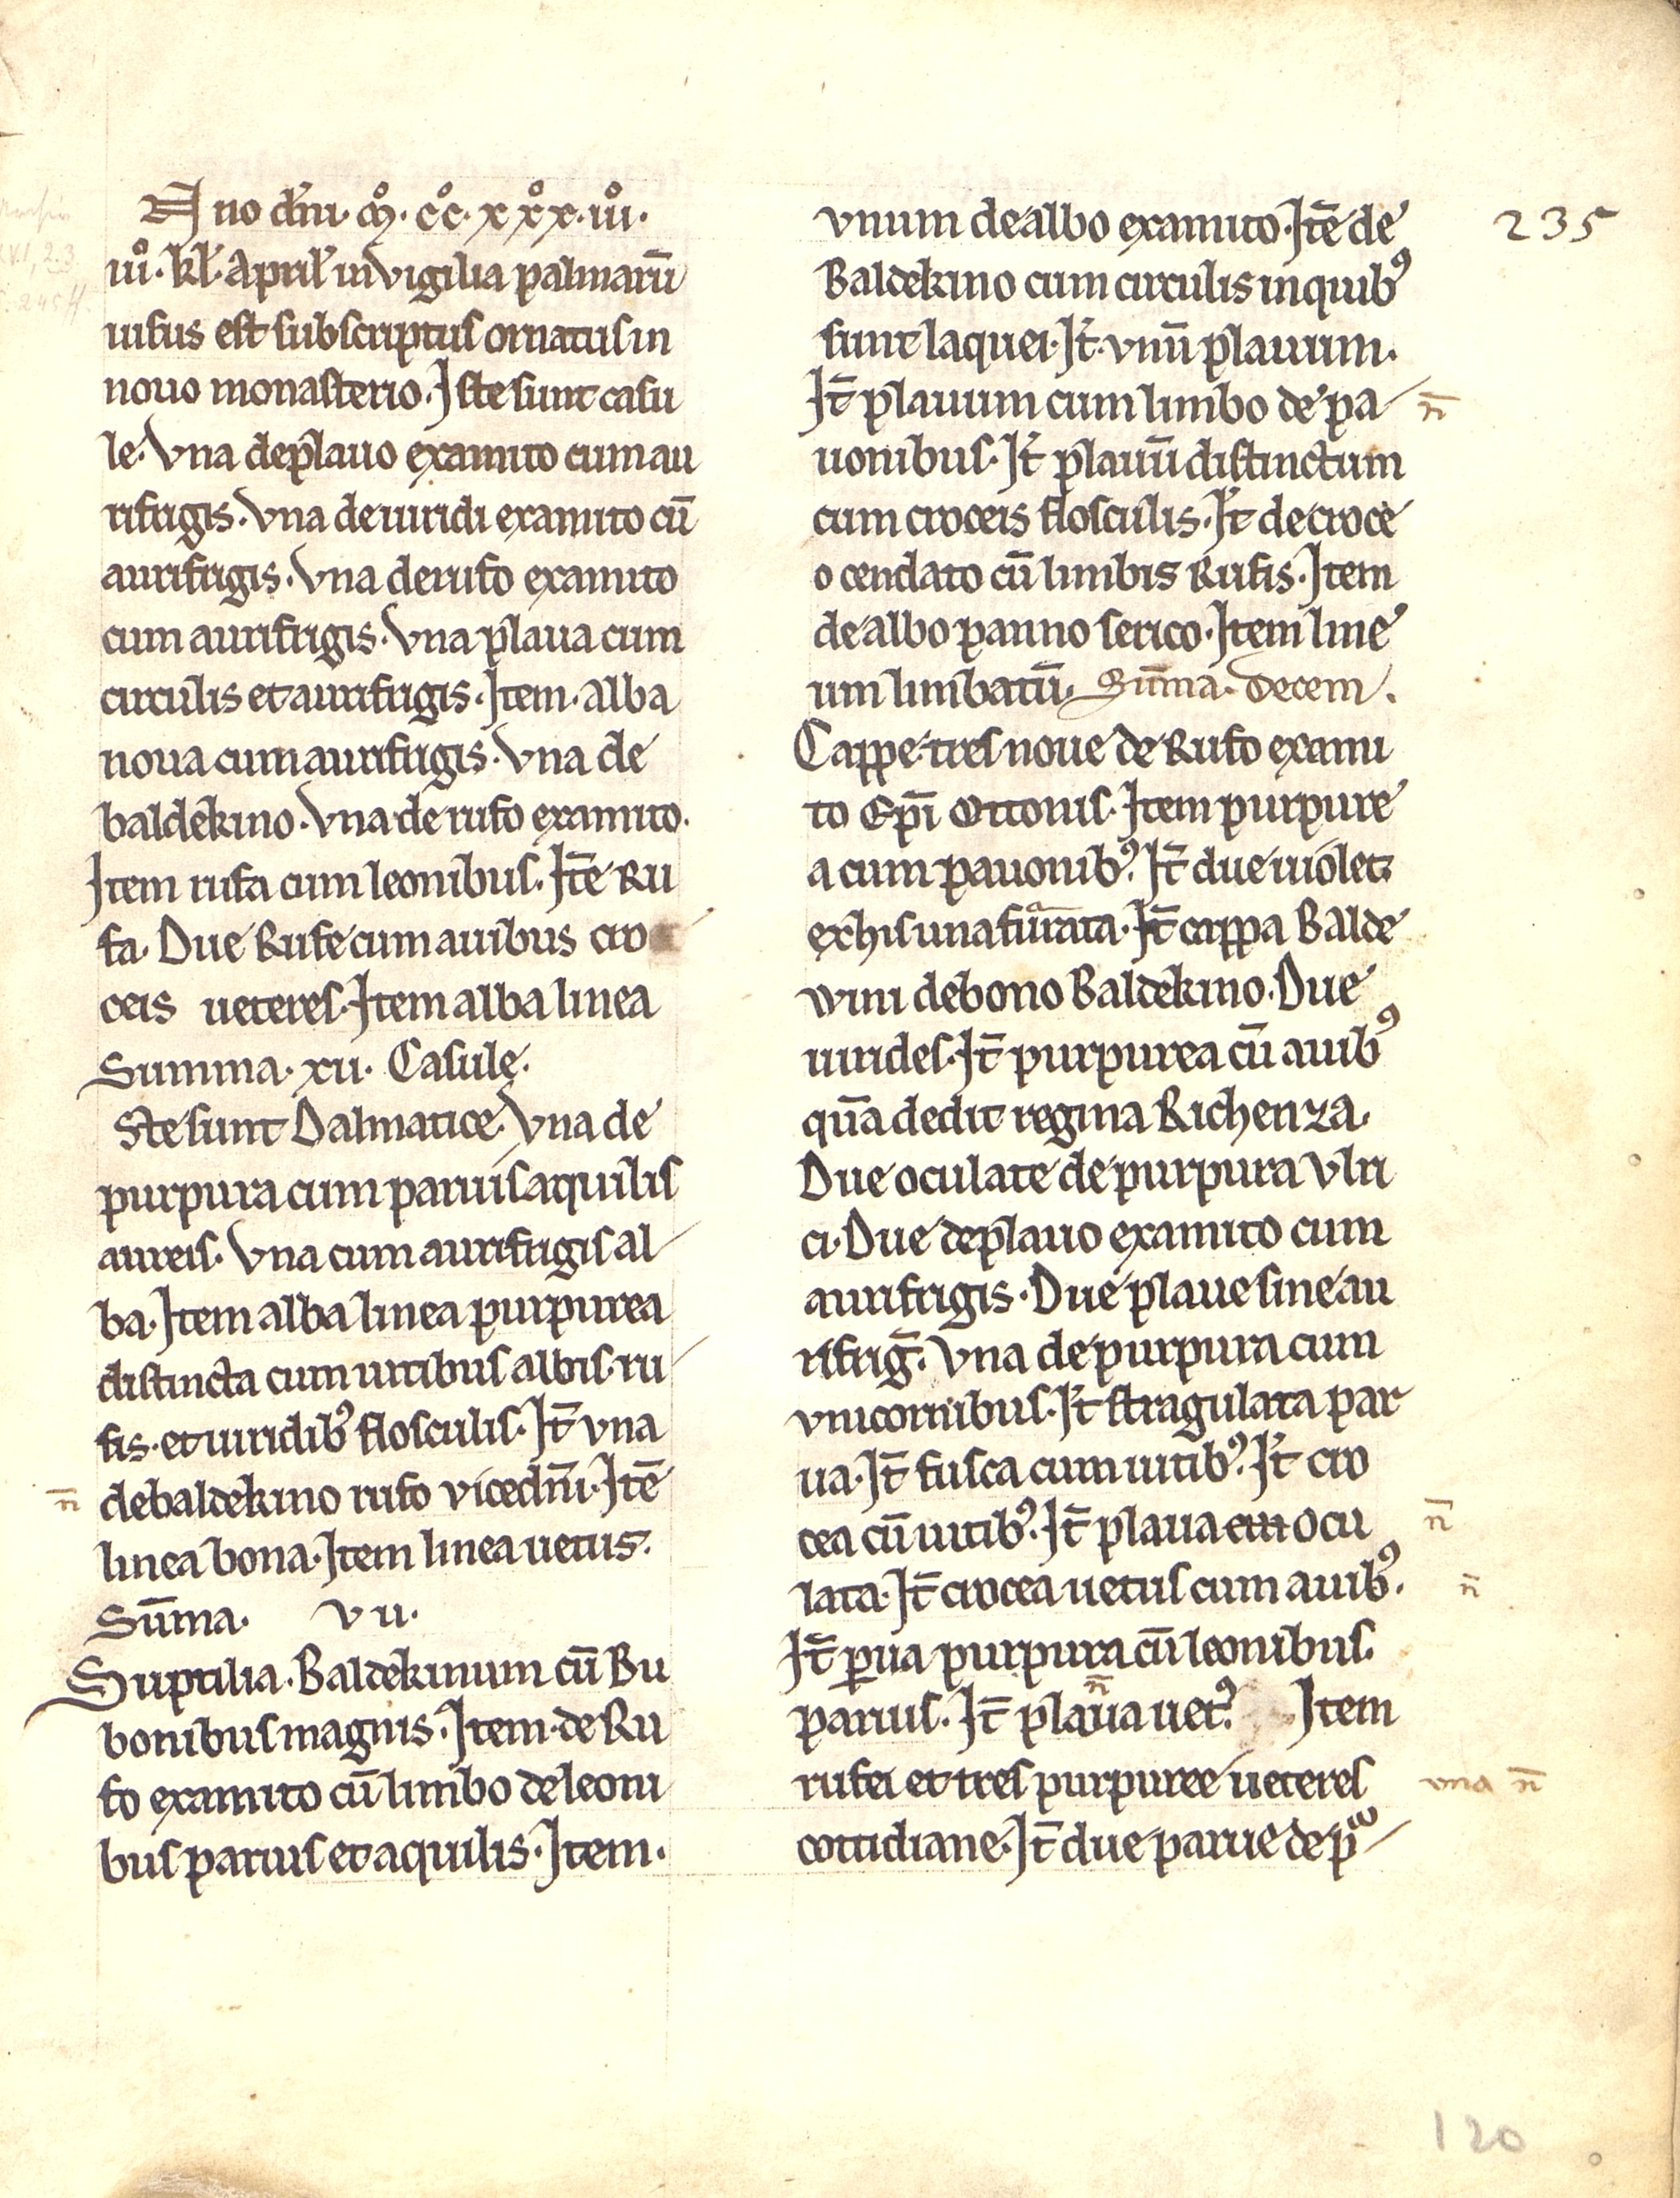 Ano dn̄i. M̊. c̊c̊. x x̊ x. iiı̊.
iiı̊. kl̄. Aprīl in vigilia palmarū
uisus est subscriptus ornatus in
nouo monasterio. Iste sunt casu
le. Vna de plauo examito cum au
rifrigis. Vna de uiridi examito cū
aurifrigis. Vna de rufo examito
cum aurifrigis. Vna plaua cum
circulis et aurifrigis. Item. alba
noua cum aurifrigis. Vna de
baldekino. Vna de rufo examito.
Item rufa cum leonibus. Itē Ru
fa. Due Rufe cum auibus cro
ceis ueteres. Item alba linea
Summa. xii. Casule.
Ste sunt Dalmatice. Vna de
purpura cum paruis aquilis
aureis. Vna cum aurifrigis al
ba. Item alba linea purpurea
distincta cum uitibus albis. ru
fis. et uiridibꝰ flosculis. It̄ vna
n̄ de baldekino rufo vicedn̄i. Itē
linea bona. Item linea uetus.
Sūma. v ii.
Suptilia. Baldekinum cū Bu
bonibus magnis. Item. de Ru
fo examito cū limbo de leoni
bus paruis et aquilis. Item.
vnum de albo examito. Itē de
Baldekino cum circulis in quibꝰ
sunt laquei. It̄. vnū plauum.
It̄ plauum cum limbo de pa n̄
uonibus. It̄ plauū distinctum
cum croceis flosculis. It̄ de croce
o cendato cū limbis Rufis. Item
de albo panno serico. Item line
um limbatū. Sūma. decem.
Cappe tres noue de Rufo exami
to Ep̄i Ottonis. Item purpure
a cum pauonibꝰ. It̄ due uiolet
ex his una furata. It̄ cappa Balde
wini de bono Baldekino. Due
uirides. It̄ purpurea cū auibꝰ
quā dedit regina Richenza.
Due oculate de purpura Vlri
ci. Due de plauo examito cum
aurifrigis. Due plaue sine au
rifriḡ. Vna de purpura cum
vnicornibus. It̄ stragulata par
ua. It̄ fusca cum uitibꝰ. It̄ cro
cea cū uitibꝰ. It̄ plaua cui ocu n̄
lata. It̄ crocea uetus cum auibꝰ. n̄
It̄ ꝑua purpura cū leonibus
paruis. It̄ plaua uetꝰ. n̄ Item
rufei et tres purpuree ueteres una n̄
cottidiane. It̄ due parue de p
235
120